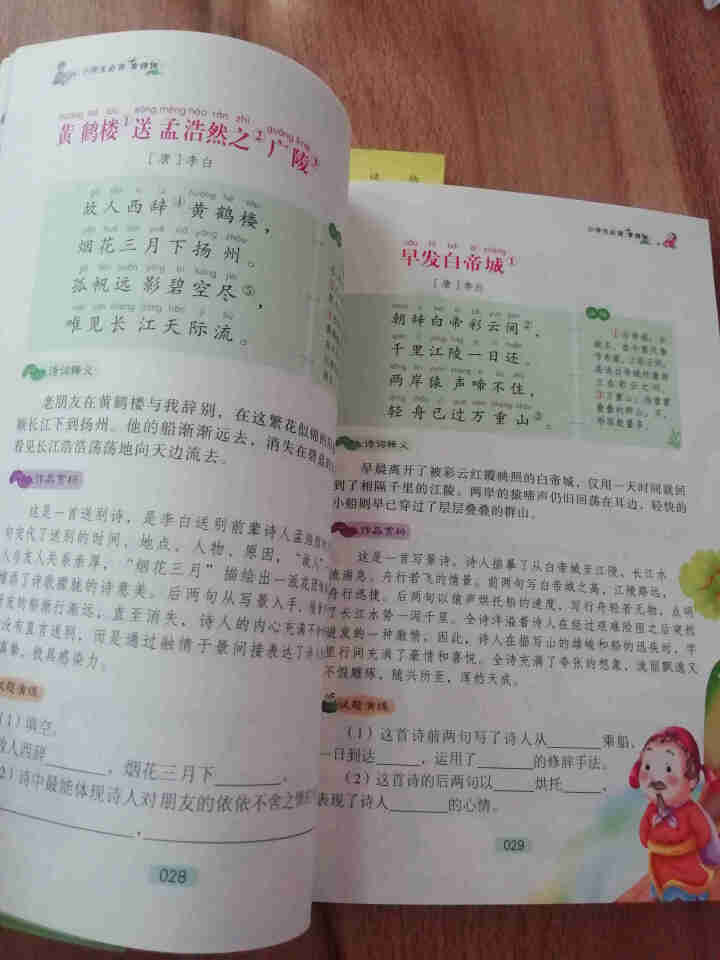 小学生必背
黄鹤楼①送孟浩然之②广陵③
[唐]李白
故人西辞④黄鹤楼，
烟花三月下扬州。
孤帆远影碧空尽⑤，
唯见长江天际流。
诗词释义
老朋友在黄鹤楼与我辞别，在这繁花似锦的
顺长江下到扬州。他的船渐渐远去，消失在碧蓝的
看见长江浩浩荡荡地向天边流去。
作品赏析
这是一首送别诗，是李白送别前辈诗人孟浩然
句交代了送别的时间、地点、人物、原因，“故人”
人与友人关系亲厚，“烟花三月”描绘出一派花团
增添了诗歌朦胧的诗意美。后两句从写景入手，
友的船渐行渐远，直至消失，诗人的内心充满不
没有直言送别，而是通过融情于景间接表达了
真挚，极具感染力。
试题演练
（1）填空。
故人西辞______，烟花三月下______。
（2）诗中最能体现诗人对朋友的依依不舍之情
______，______
028
读物
小学生必背
早发白帝城①
[唐]李白
朝辞白帝彩云间②，
千里江陵一日还。
两岸猿声啼不住，
轻舟已过万重山③。
诗词释义
早晨离开了被彩云红霞映照的白帝城，仅用一天时间就回
到了相隔千里的江陵。两岸的猿啼声仍旧回荡在耳边，轻快的
小船则早已穿过了层层叠叠的群山。
作品赏析
这是一首写景诗。诗人描摹了从白帝城至江陵，长江水
流湍急、舟行若飞的情景。前两句写白帝城之高，江陵路远，
舟行迅捷。后两句以猿声烘托船的速度，写行舟轻若无物，点明
了长江水势一泻千里。全诗洋溢着诗人在经过艰难险阻之后突然
迸发的一种激情，因此，诗人在描写山的雄峻和船的迅疾时，字
里行间充满了豪情和喜悦。全诗充满了夸张的想象，流丽飘逸又
不假雕琢，随兴所至，浑然天成。
试题演练
（1）这首诗前两句写了诗人从______乘船，
一日到达______，运用了______的修辞手法。
（2）这首诗的后两句以______烘托______，
表现了诗人______的心情。
029